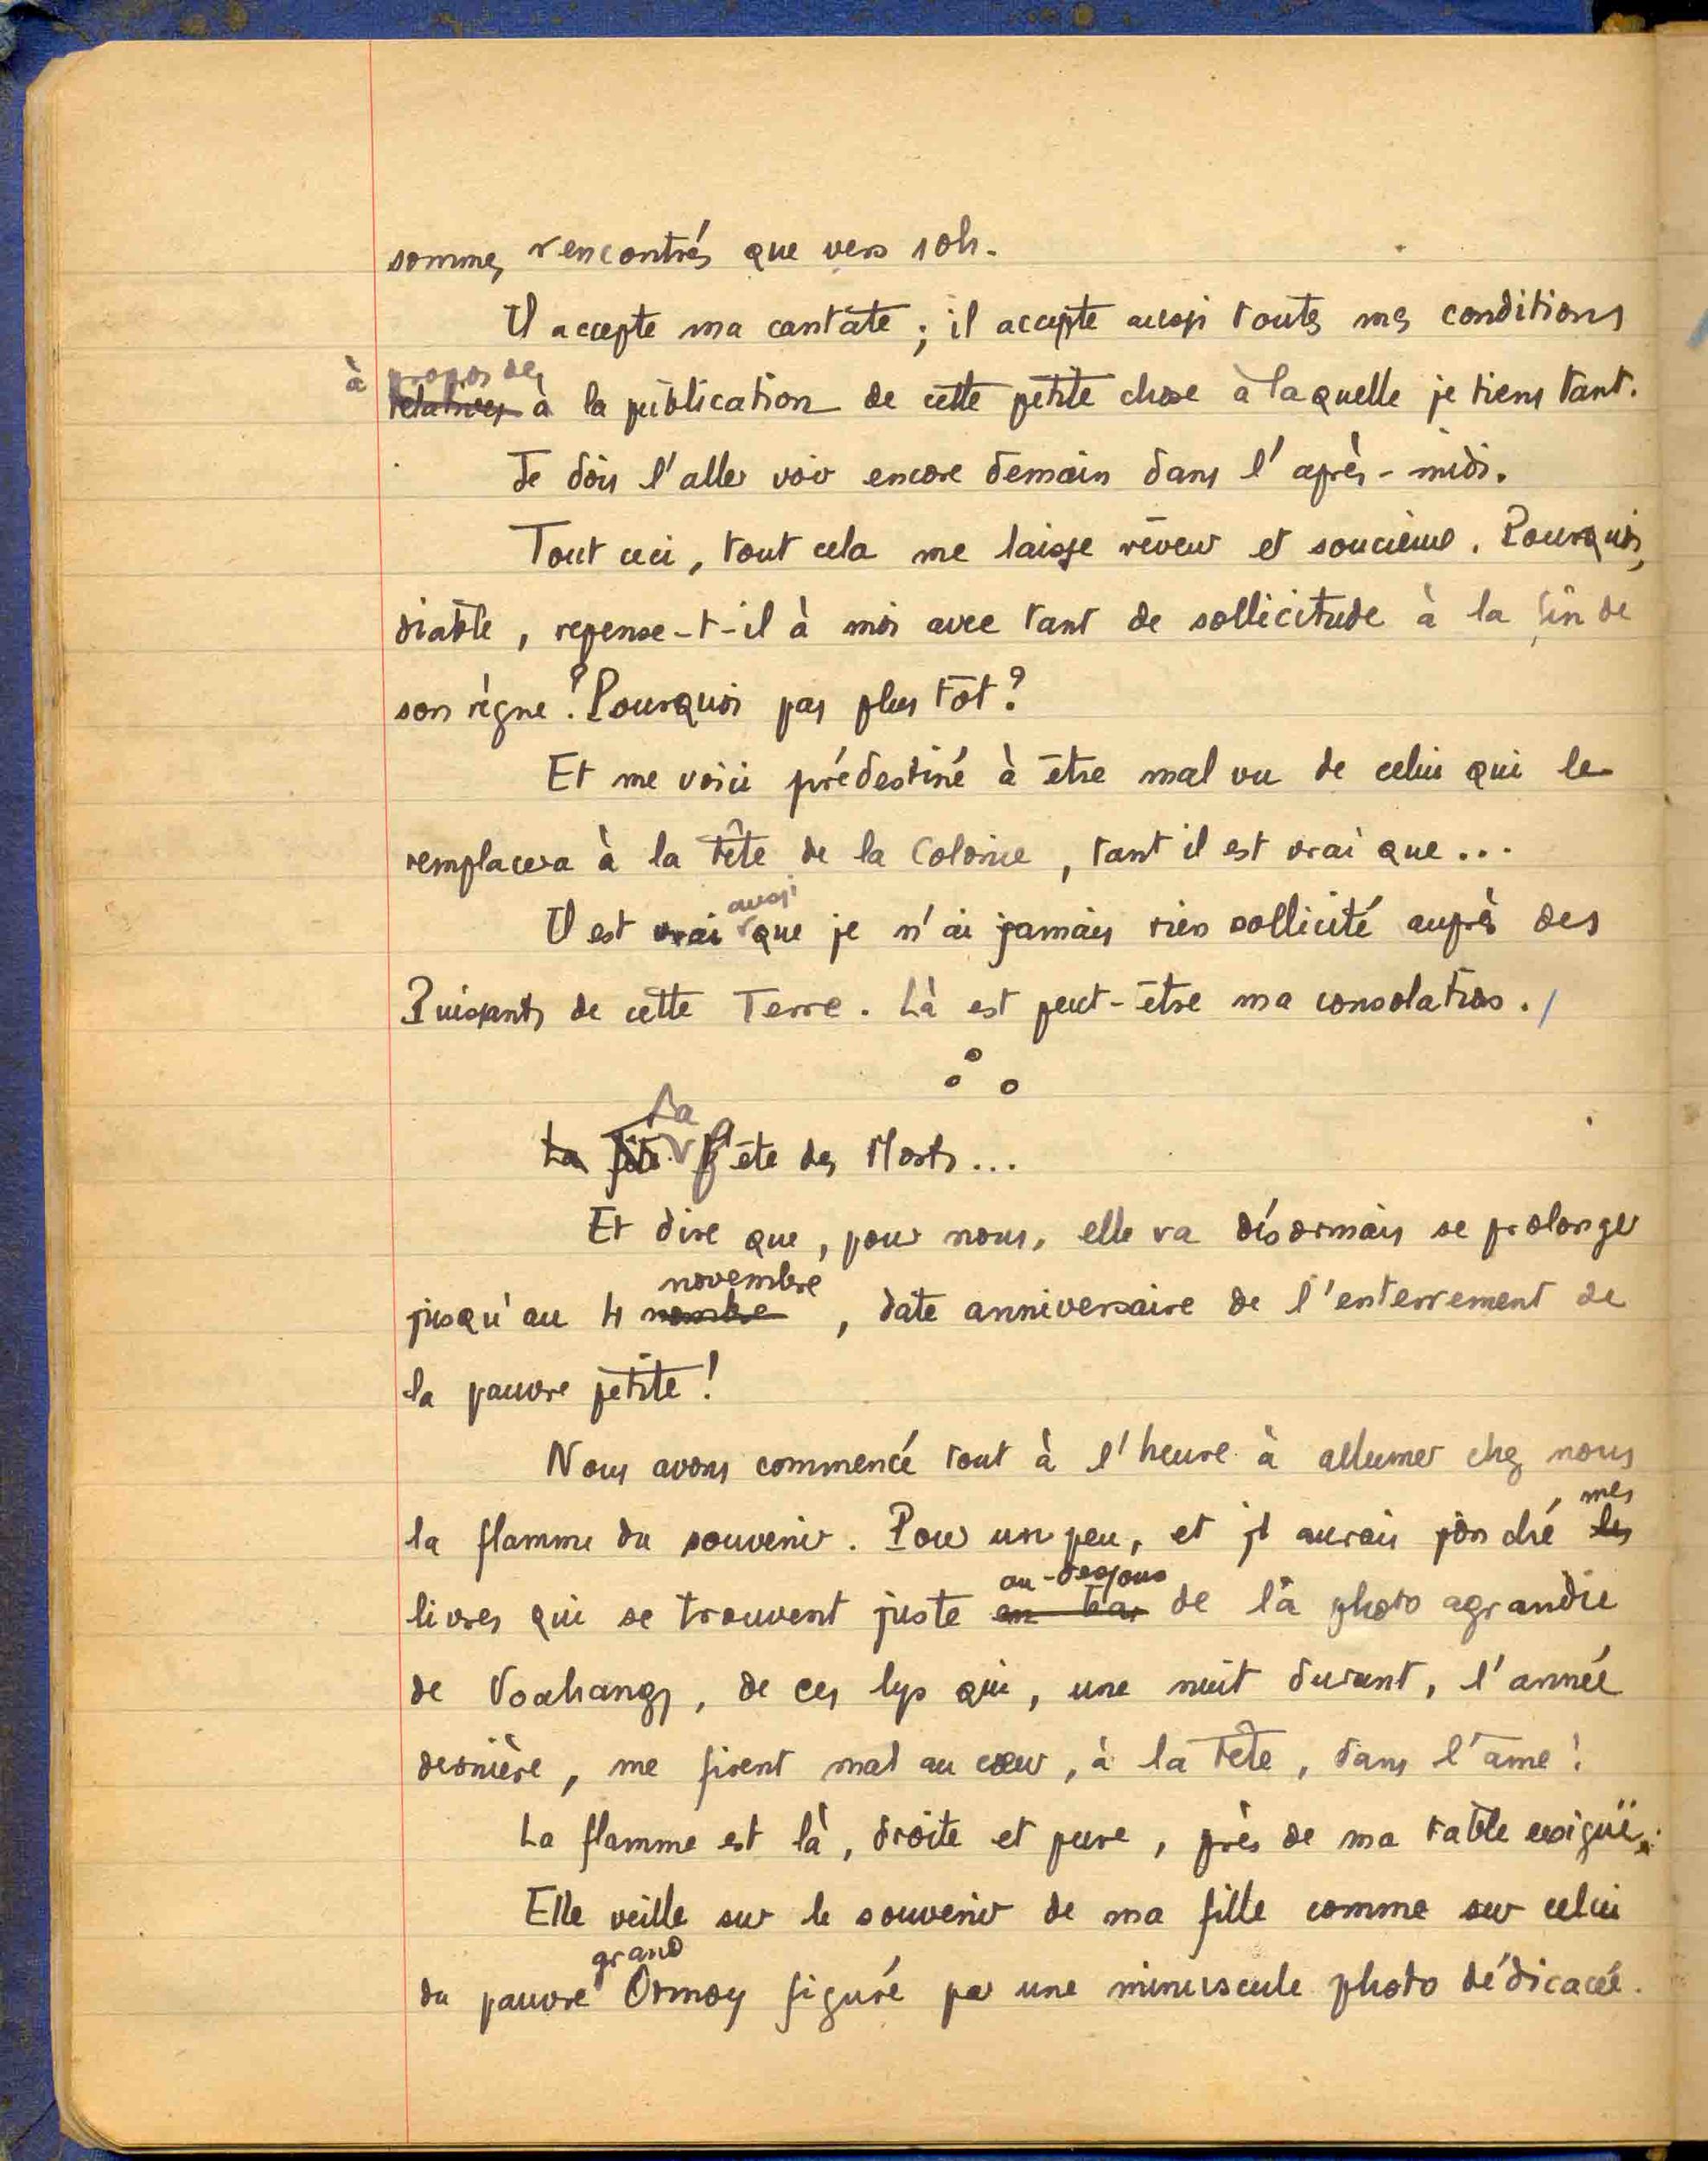 sommes rencontrés que vers 10h.
Il accepte ma cantate ; il accepte aussi toutes mes conditions
à propos de
relatives à la publication de cette petite chose à laquelle je tiens tant.
Je dois l'aller voir encore demain dans l'après-midi.
Tout ceci, tout cela me laisse rêveur et soucieux. Pourquoi,
diable, repense-t-il à moi avec tant de sollicitude à la fin de
son règne ? Pourquoi pas plus tôt ?
Et me voici prédestiné à être mal vu de celui qui le
remplacera à la tête de la Colonie, tant il est vrai que...
aussi
Il est vrai que je n'ai jamais rien sollicité auprès des
Puissants de cette Terre. Là est peut-être ma consolation. /
La
La fête Fête des Morts...
Et dire que, pour nous, elle va désormais se prolonger
novembre
jusqu'au 4 , date anniversaire de l'enterrement de
la pauvre petite !
Nous avons commencé tout à l'heure à allumer chez nous
mes
la flamme du souvenir. Pour un peu, et j' aurais jonché les
au-dessous
livres qui se trouvent juste en bas de la photo agrandie
de Voahangy, de ces lys qui, une nuit durant, l'année
dernière, me firent mal au cœur, à la tête, dans l'âme !
La flamme est là, droite et pure, près de ma table exiguë.
Elle veille sur le souvenir de ma fille comme sur celui
grand
du pauvre Ormoy figuré par une minuscule photo dédicacée.